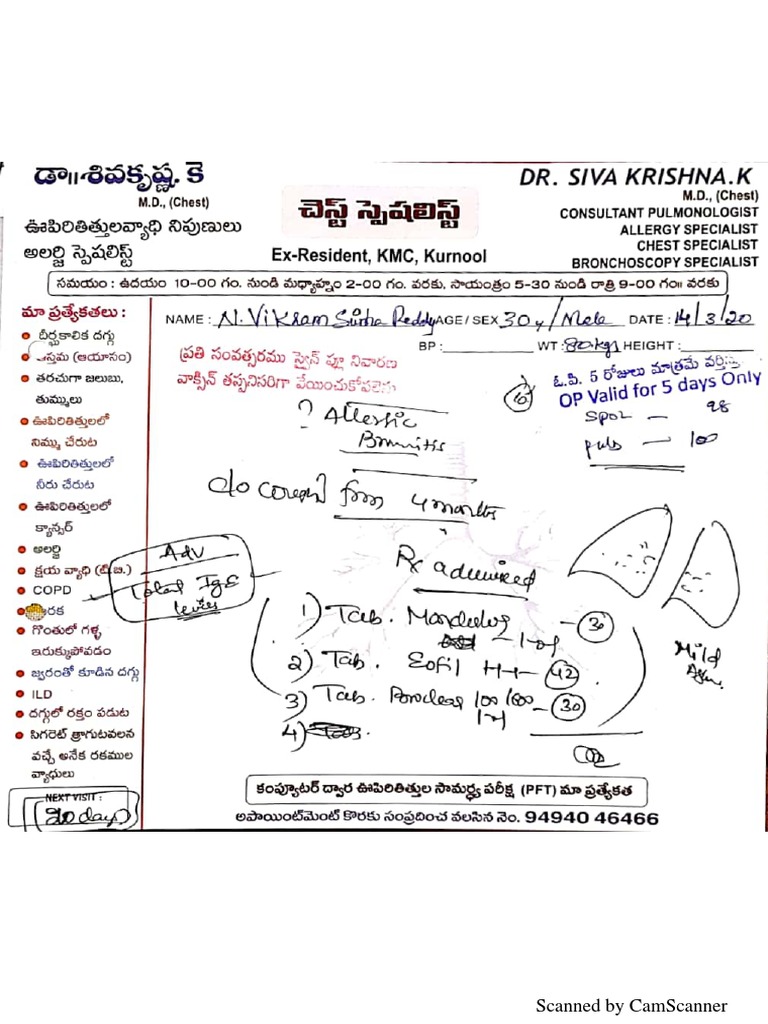 డా॥శివకృష్ణ. కె
M.D., (Chest)
ఊపిరితిత్తులవ్యాధి నిపుణులు
అలర్జి స్పెషలిస్ట్
చెస్ట్ స్పెషలిస్ట్
Ex-Resident, KMC, Kurnool
DR. SIVA KRISHNA.K
M.D., (Chest)
CONSULTANT PULMONOLOGIST
ALLERGY SPECIALIST
CHEST SPECIALIST
BRONCHOSCOPY SPECIALIST
సమయం : ఉదయం 10-00 గం. నుండి మధ్యాహ్నం 2-00 గం. వరకు, సాయంత్రం 5-30 నుండి రాత్రి 9-00 గం॥ వరకు
మా ప్రత్యేకతలు :
దీర్ఘకాలిక దగ్గు
స్తమ (ఆయాసం)
తరచుగా జలుబు,
తుమ్ములు
ఊపిరితిత్తులలో
నిమ్ము చేరుట
ఊపిరితిత్తులలో
నీరు చేరుట
ఊపిరితిత్తులలో
క్యాన్సర్
అలర్జి
క్షయ వ్యాధి (టి.బి.)
COPD
రక
గొంతులో గళ్ళ
ఇరుక్కుపోవడం
జ్వరంతో కూడిన దగ్గు
ILD
దగ్గులో రక్తం పడుట
సిగరెట్ త్రాగుటవలన
వచ్చే అనేక రకముల
వ్యాధులు
NEXT VISIT :
20 days
NAME : N. Vikram Simha Reddy AGE / SEX 30y / Male DATE : 14/3/20
BP : WT : 80kgs HEIGHT :
ప్రతి సంవత్సరము స్వైన్ ఫ్లూ నివారణ
వాక్సిన్ తప్పనిసరిగా వేయించుకోవలెను
ఓ.పి. 5 రోజులు మాత్రమే
OP Valid for 5 days Only
SpO2 — 98
puls — 100
? Allergic
c/o cough from 4 months
Adv
Total IgE
levels
Rx advised
1) Tab. — 30
2) Tab. — 42
3) Tab. 100 — 30
4)
Mild
కంప్యూటర్ ద్వార ఊపిరితిత్తుల సామర్థ్య పరీక్ష (PFT) మా ప్రత్యేకత
అపాయింట్‌మెంట్ కొరకు సంప్రదించ వలసిన నెం. 94940 46466
Scanned by CamScanner